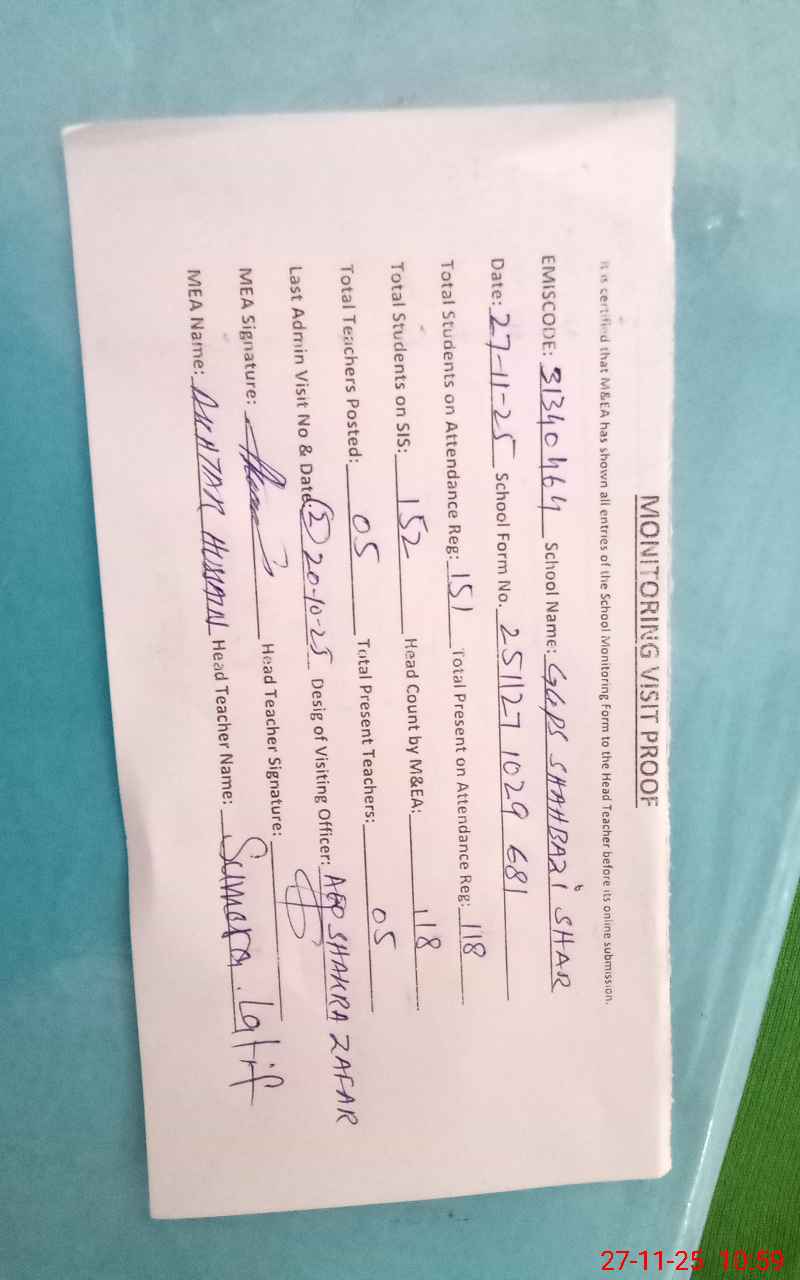 MONITORING VISIT PROOF
It is certified that M&EA has shown all entries of the School Monitoring Form to the Head Teacher before its online submission.
EMISCODE: 31340464 School Name: GGPS SHAHBAZI SHAR
Date: 27-11-25 School Form No. 251127 1029 681
Total Students on Attendance Reg: 151 Total Present on Attendance Reg: 118
Total Students on SIS: 152 Head Count by M&EA: 118
Total Teachers Posted: 05 Total Present Teachers: 05
Last Admin Visit No & Date: (2) 20-10-25 Desig of Visiting Officer: AEO SHAKRA ZAFAR
MEA Signature: Head Teacher Signature:
MEA Name: AKHTAR HUSSAIN Head Teacher Name: Sumera. Latif
27-11-25 10:59